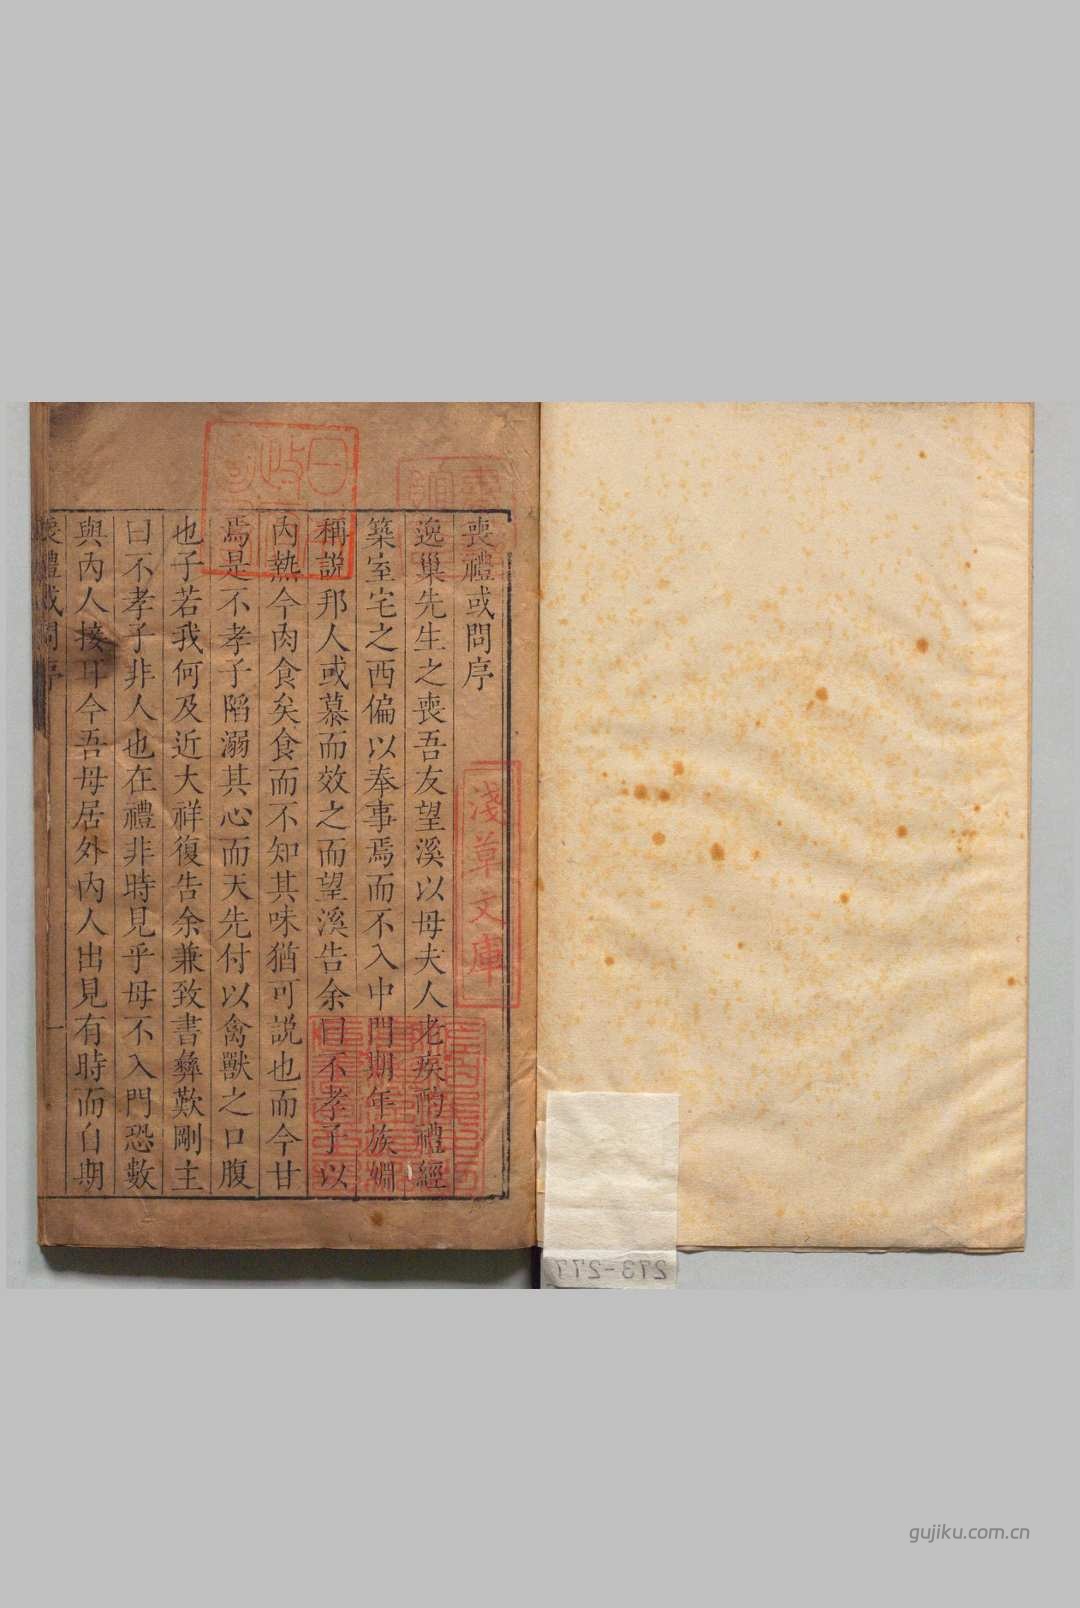 喪禮或問序
逸巢先生之喪吾友望溪以母夫人老疾酌禮經
築室宅之西偏以奉事焉而不入中門期年族婣
稱說邦人或慕而效之而望溪告余曰不孝子以
內熱今肉食矣食而不知其味猶可説也而今甘
焉是不孝子陷溺其心而天先付以禽獸之口腹
也子若我何及近大祥復告余兼致書彝歎剛主
曰不孝子非人也在禮非時見乎母不入門恐數
與內人接耳今吾母居外內人出見有時而自期
喪禮或問序
一
淺草文庫
273-277
gujiku.com.cn